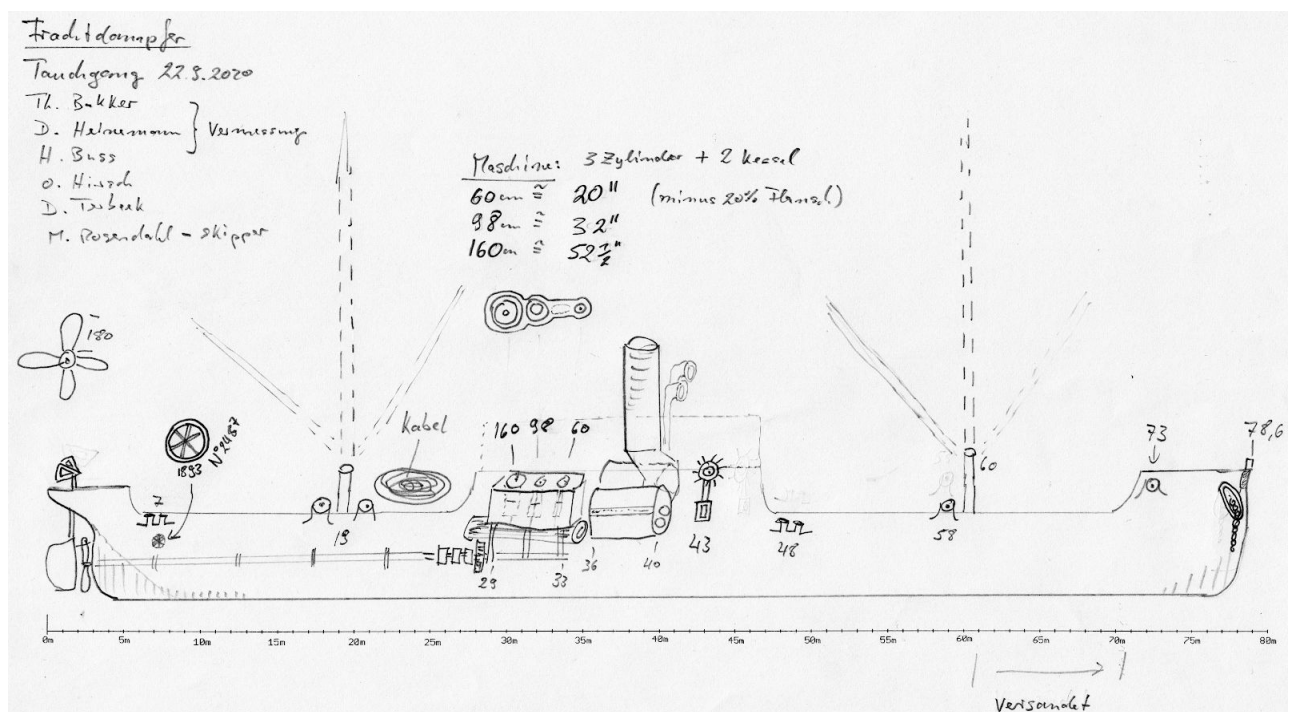 Frachtdampfer
Tauchgang 22.9.2020
Th. Bakker
D. Heinemann } Vermessung
H. Buss
O. Hirsch
D.
M. Rosendahl - Skipper
Maschine: 3 Zylinder + 2 Kessel
60cm ≙ 20" (minus 20% Flansch)
98cm ≙ 32"
160cm ≙ 52 1/2"
180
1893 N°2487
Kabel
160 98 60
73
78,6
60
7
19
29
33
36
40
43
48
58
0m 5m 10m 15m 20m 25m 30m 35m 40m 45m 50m 55m 60m 65m 70m 75m 80m
Versandet